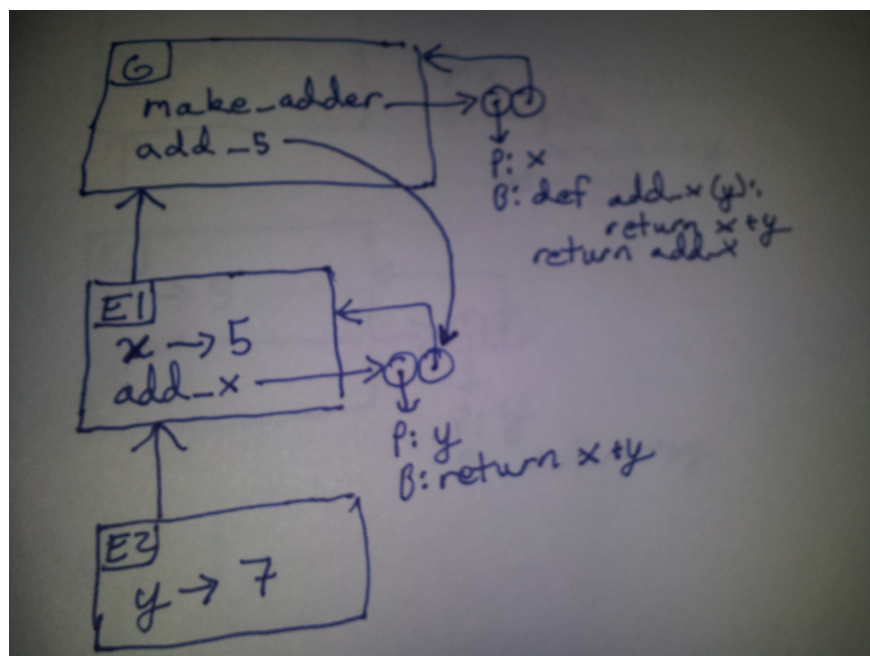 G
make_adder
add_5
P: x
B: def add_x(y):
return x+y
return add_x
E1
x → 5
add_x
P: y
B: return x+y
E2
y → 7